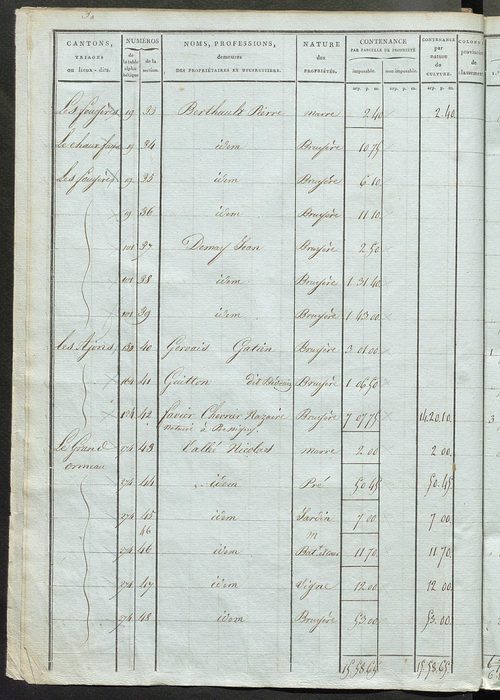 CANTONS,
TRIAGES
ou lieux-dits.
NUMÉROS
de la table alphabétique
de la section.
NOMS, PROFESSIONS,
demeures
DES PROPRIÉTAIRES ET USUFRUITIERS.
NATURE
des
PROPRIÉTÉS.
CONTENANCE
PAR PARCELLE DE PROPRIÉTÉ
imposable.
non imposable.
CONTENANCE
par
nature
de
CULTURE.
arp. p. m. arp. p. m. arp. p. m.
Les fougères 19 33 Berthault Pierre marre 2.40 2.40
19 34 idem Bruyère 10.75
Les fougères 19 35 idem Bruyère 6.10
19 36 idem Bruyère 11.10
101 37 Jean Bruyère 2.50
101 38 idem Bruyère 1.31.40
101 39 idem Bruyère 1.63.00
Les Ajons 40 Gervais Gatien Bruyère 3.01.00
164 41 Guitton dit Bruyère 1.06.50
42 Chevrier Nazaire Bruyère 7.07.75 14.20.10
notaire à
Le Grand 274 43 Vallée Nicolas marre 2.00 2.00
ormeau
274 44 idem Pré 50.45 50.45
274 45 idem Jardin 7.00 7.00
46 m
274 46 idem 11.70 11.70
274 47 idem Vigne 12.00 12.00
274 48 idem Bruyère 53.00 53.00
15.58.65 15.58.65